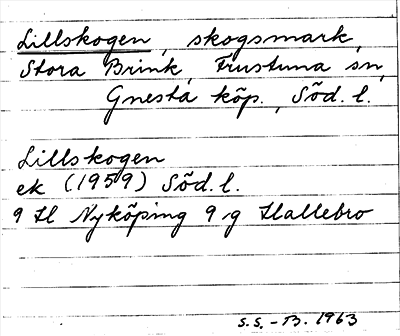 Lillskogen, skogsmark,
Stora Brink, Frustuna sn,
Gnesta köp., Söd. l.
Lillskogen
ek (1959) Söd. l.
9 H Nyköping 9 g Hallebro
S.S. - B. 1963